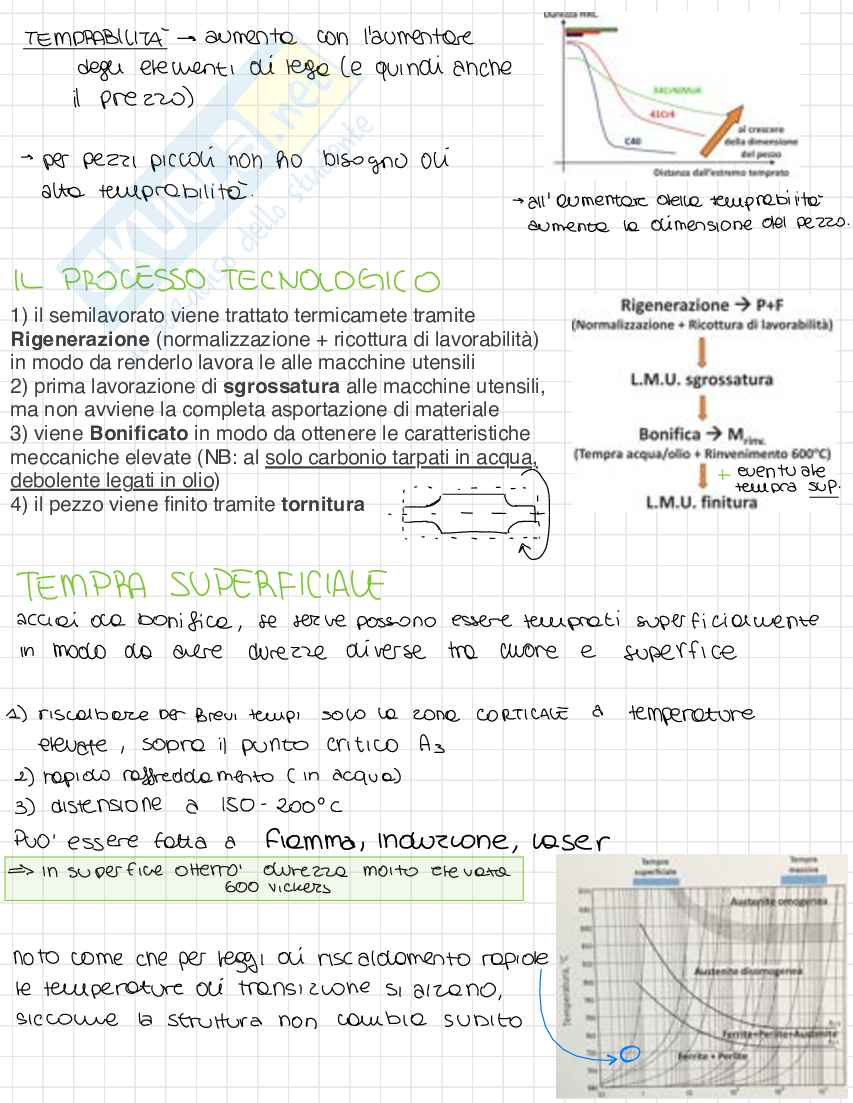 TEMPRABILITÀ → aumenta con l'aumentare
degli elementi di lega (e quindi anche
il prezzo)
→ per pezzi piccoli non ho bisogno di
alta temprabilità.
Durezza HRC
34CrNiMo6
41Cr4
C40
al crescere
della dimensione
del pezzo
Distanza dall'estremo temprato
→ all'aumentare della temprabilità
aumenta la dimensione del pezzo.
SKUOLA.net
il paradiso dello studente
IL PROCESSO TECNOLOGICO
1) il semilavorato viene trattato termicamete tramite
Rigenerazione (normalizzazione + ricottura di lavorabilità)
in modo da renderlo lavora le alle macchine utensili
2) prima lavorazione di sgrossatura alle macchine utensili,
ma non avviene la completa asportazione di materiale
3) viene Bonificato in modo da ottenere le caratteristiche
meccaniche elevate (NB: al solo carbonio tarpati in acqua,
debolente legati in olio)
4) il pezzo viene finito tramite tornitura
Rigenerazione → P+F
(Normalizzazione + Ricottura di lavorabilità)
L.M.U. sgrossatura
Bonifica → Mrinv.
(Tempra acqua/olio + Rinvenimento 600°C)
+ eventuale
tempra sup.
L.M.U. finitura
TEMPRA SUPERFICIALE
acciai da bonifica, se serve possono essere temprati superficialmente
in modo da avere durezze diverse tra cuore e superfice
1) riscaldare per Brevi tempi solo la zona CORTICALE a temperature
elevate, sopra il punto critico A3
2) rapido raffreddamento (in acqua)
3) distensione a 150-200°C
Può essere fatta a fiamma, induzione, laser
⇒ in superfice otterrò durezza molto elevata
600 vickers
noto come che per leggi di riscaldamento rapide
le temperature di transizione si alzano,
siccome la struttura non cambia subito
Tempra
superficiale
Tempra
massiva
Austenite omogenea
Austenite disomogenea
Ferrite+Perlite+Austenite
Ferrite + Perlite
Temperatura, °C